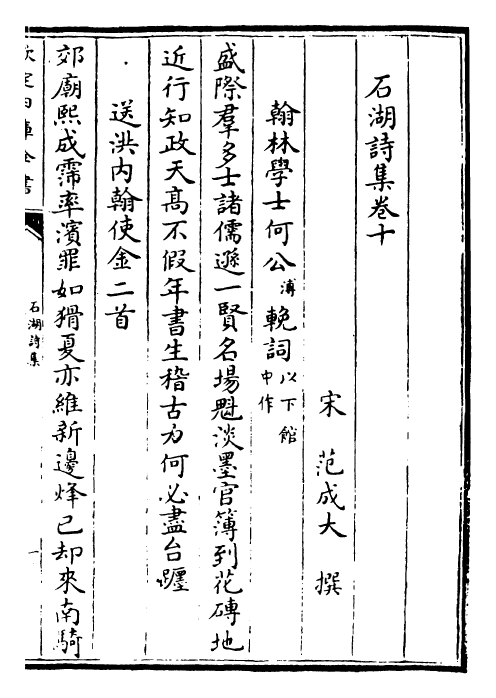 石湖詩集卷十
宋 范成大 撰
翰林學士何公溥輓詞以下館中作
盛際羣多士諸儒遜一賢名場魁淡墨官簿到花磚地
近行知政天高不假年書生稽古力何必盡台躔
送洪内翰使金二首
郊廟熙成霈率濱罪如猾夏亦維新邊烽已却來南騎
欽定四庫全書
石湖詩集
一